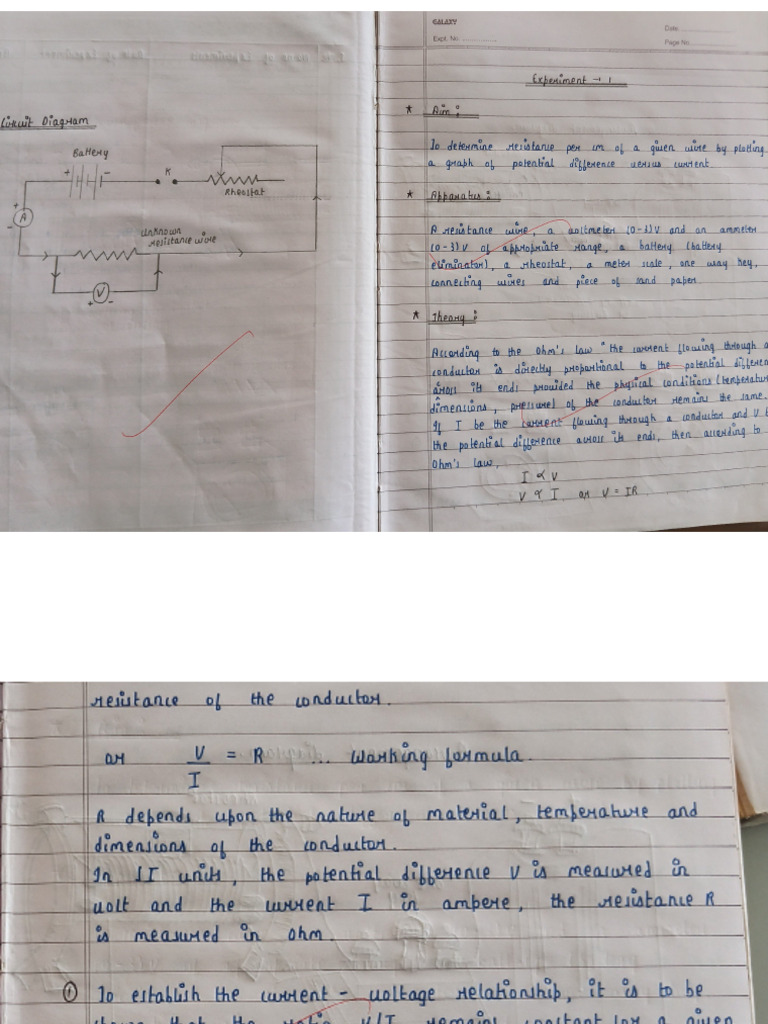 Circuit Diagram
Battery
+
-
K
Rheostat
+
A
-
Unknown
resistance wire
+
V
-
GALAXY
Date
Expt. No.
Page No.
Experiment → 1
* Aim :
To determine resistance per cm of a given wire by plotting
a graph of potential difference versus current.
* Apparatus :
A resistance wire, a voltmeter (0-3)V and an ammeter
(0-3)V of appropriate range, a battery (battery
eliminator), a rheostat, a meter scale, one way key,
connecting wires and piece of sand paper
* Theory :
According to the Ohm's law "the current flowing through a
conductor is directly proportional to the potential differen
across its ends provided the physical conditions (temperature
dimensions, pressure) of the conductor remains the same.
If I be the current flowing through a conductor and V b
the potential difference across its ends, then according to
Ohm's law,
I ∝ V
V ∝ I or V = IR
resistance of the conductor.
or V/I = R ... working formula.
R depends upon the nature of material, temperature and
dimensions of the conductor.
In SI units, the potential difference V is measured in
volt and the current I in ampere, the resistance R
is measured in ohm.
① To establish the current - voltage relationship, it is to be
that the ratio V/I remains constant for a given